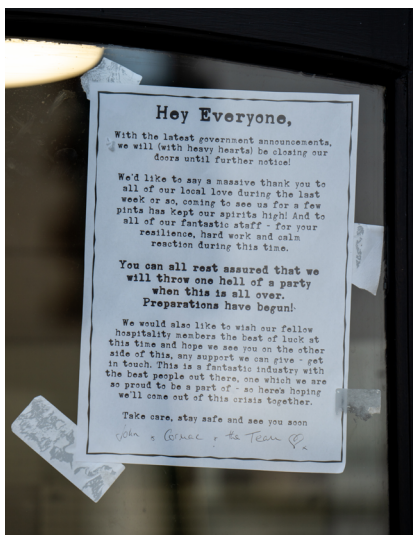 Hey Everyone,
With the latest government announcements,
we will (with heavy hearts) be closing our
doors until further notice!
We'd like to say a massive thank you to
all of our local love during the last
week or so, coming to see us for a few
pints has kept our spirits high! And to
all of our fantastic staff - for your
resilience, hard work and calm
reaction during this time.
You can all rest assured that we
will throw one hell of a party
when this is all over.
Preparations have begun!
We would also like to wish our fellow
hospitality members the best of luck at
this time and hope we see you on the other
side of this, any support we can give - get
in touch. This is a fantastic industry with
the best people out there, one which we are
so proud to be a part of - so here's hoping
we'll come out of this crisis together.
Take care, stay safe and see you soon
John & Cormac & the Team